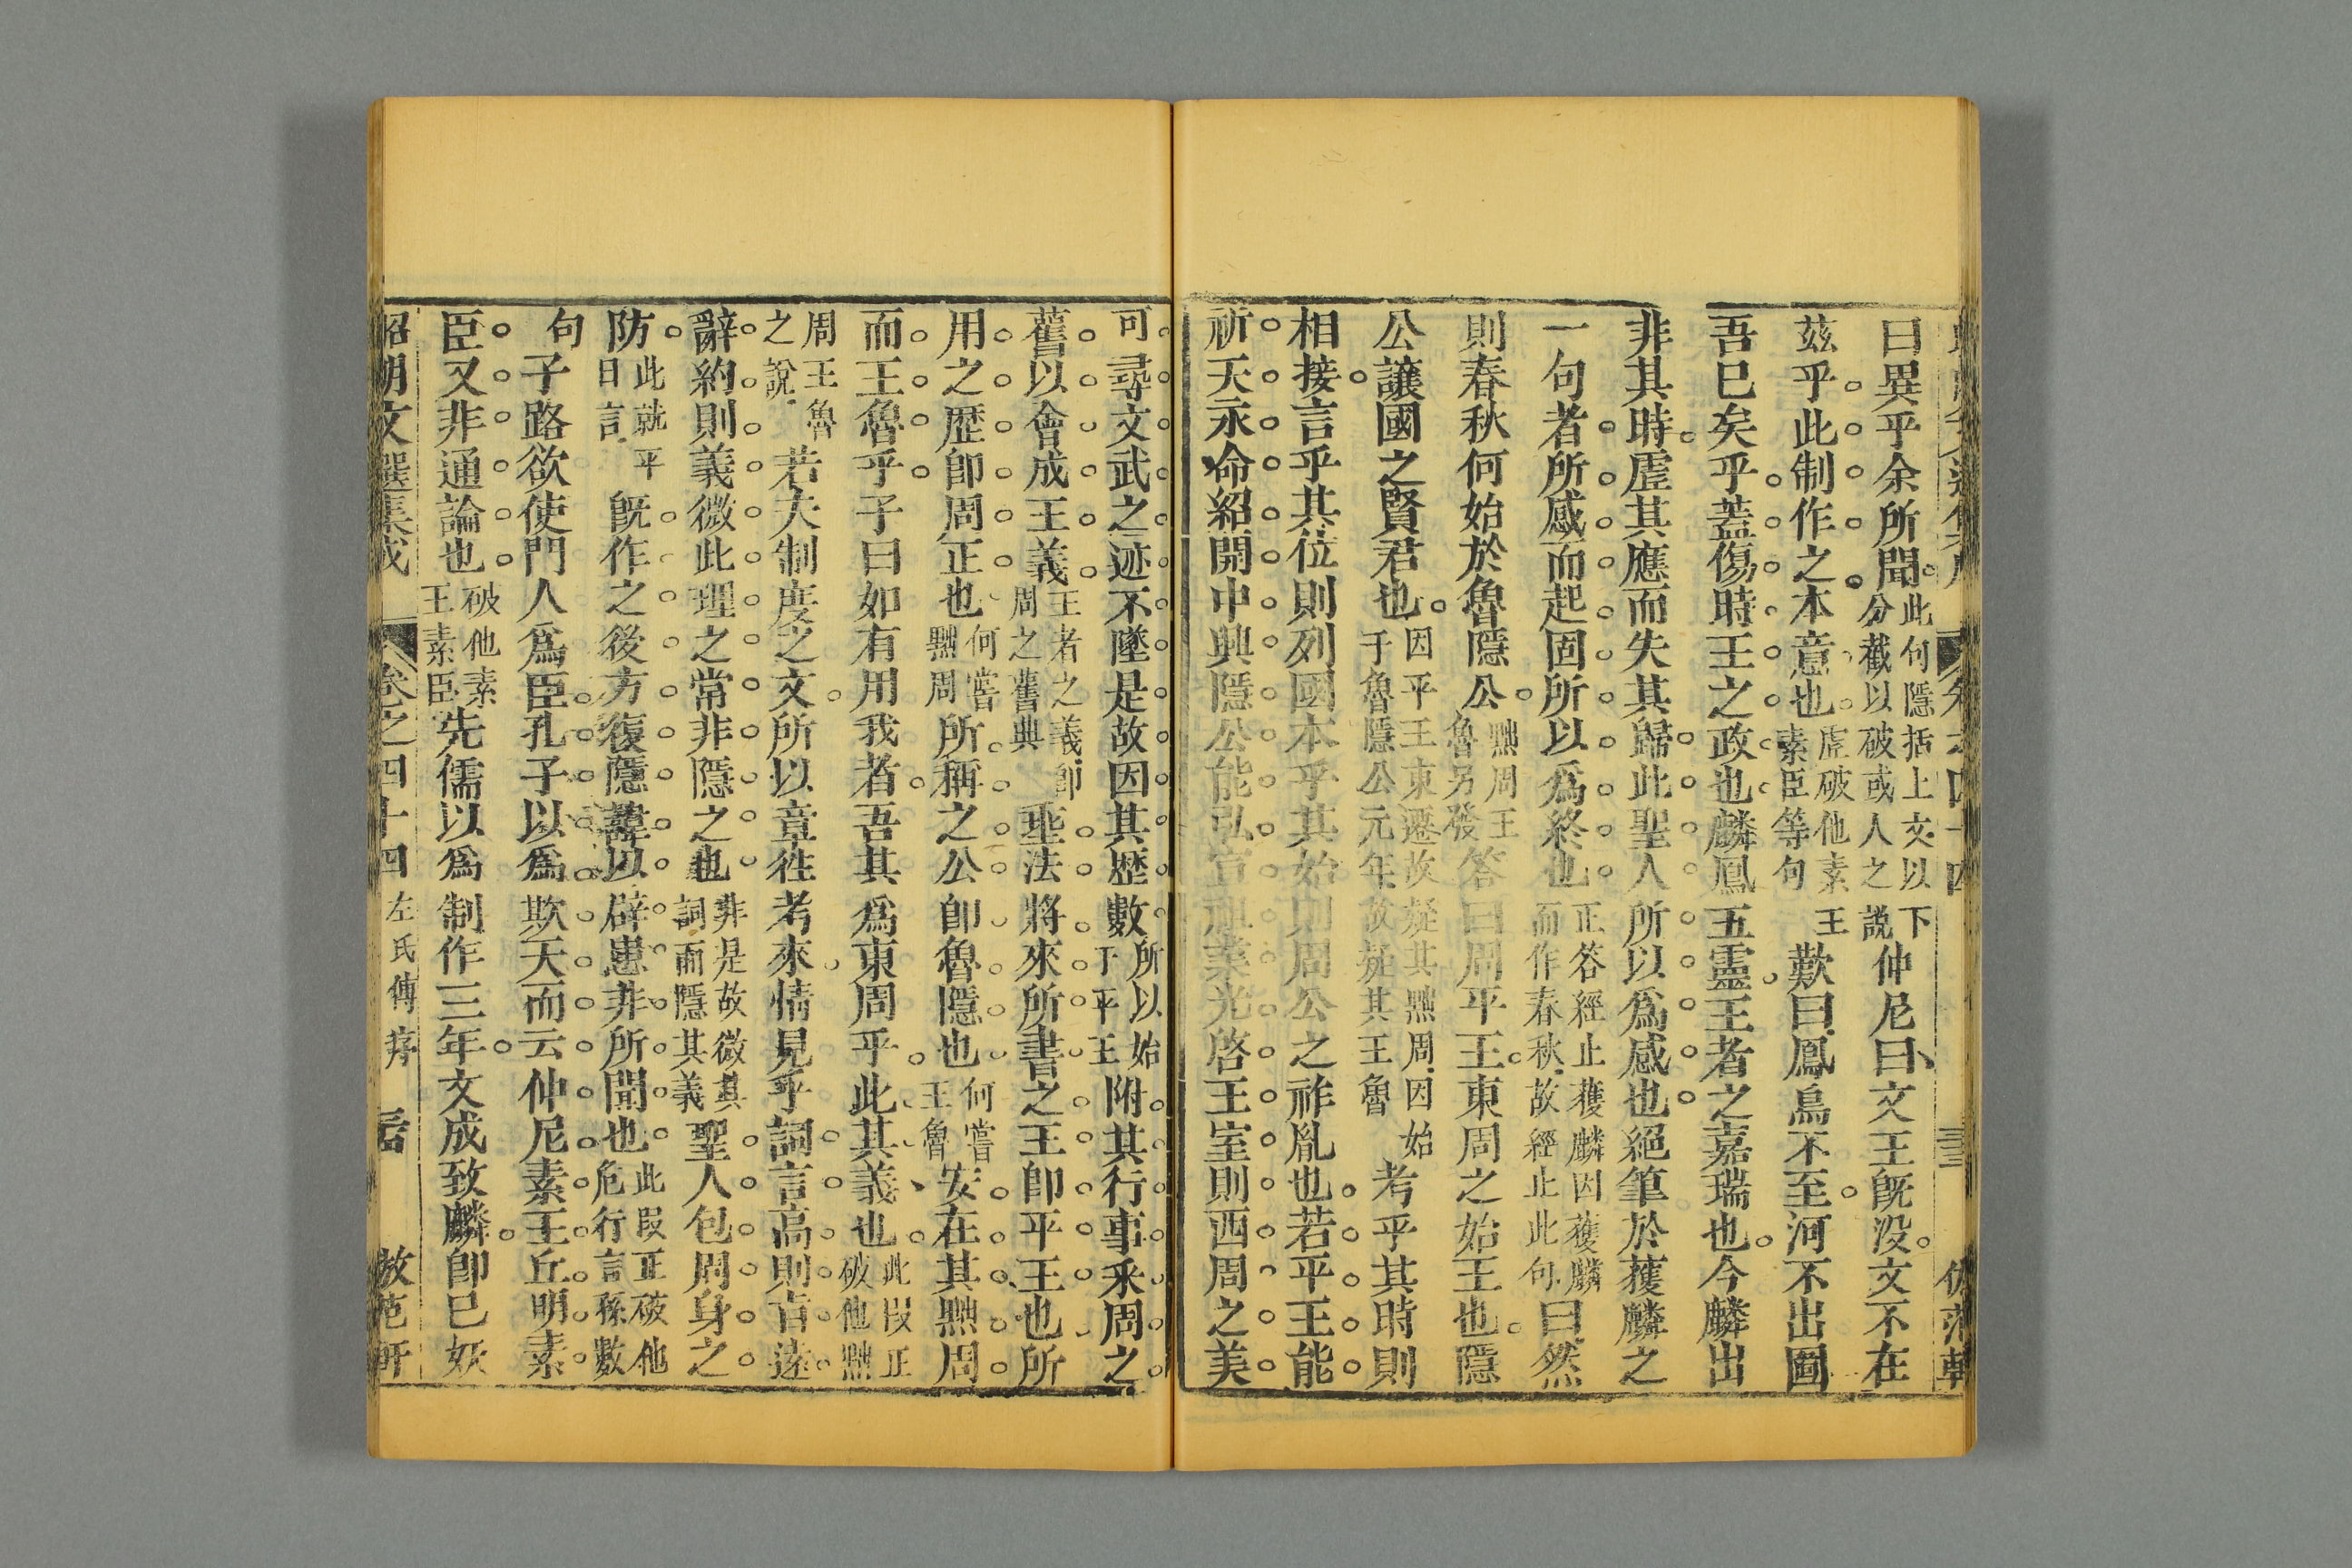 曰異乎余所聞此何隱括上文以下分截以破或人之說仲尼曰文王旣没文不在
茲乎此制作之本意也虛破他素王素臣等句歎曰鳳鳥不至河不出圖
吾已矣乎蓋傷時王之政也麟鳳五靈王者之嘉瑞也今麟出
非其時虛其應而失其歸此聖人所以爲感也絕筆於獲麟之
一句者所感而起固所以爲終也正答經止獲麟因獲麟而作春秋故經止此句曰然
則春秋何始於魯隱公黜周王魯另發答曰周平王東周之始王也隱
公讓國之賢君也因平王東遷故疑其黜周因始于魯隱公元年故疑其王魯考乎其時則
相接言乎其位則列國本乎其始則周公之祚胤也若平王能
祈天永命紹開中興隱公能弘宣祖業光啓王室則西周之美
可尋文武之迹不墜是故因其歷數所以始于平王附其行事采周之
舊以會成王義王者之義卽周之舊典垂法將來所書之王卽平王也所
用之歷卽周正也何嘗黜周所稱之公卽魯隱也何嘗王魯安在其黜周
而王魯乎子曰如有用我者吾其爲東周乎此其義也此段正破他黜
周王魯之說若夫制度之文所以章徃考來情見乎詞言高則旨遠
辭約則義微此理之常非隱之也非是故微其詞而隱其義聖人包周身之
防此就平日言旣作之後方復隱諱以辟患非所聞也此段正破他危行言孫數
句子路欲使門人爲臣孔子以爲欺天而云仲尼素王丘明素
臣又非通論也破他素王素臣先儒以爲制作三年文成致麟卽已妖
昭明文選集成 卷之四十四 左氏傳序 倣范軒